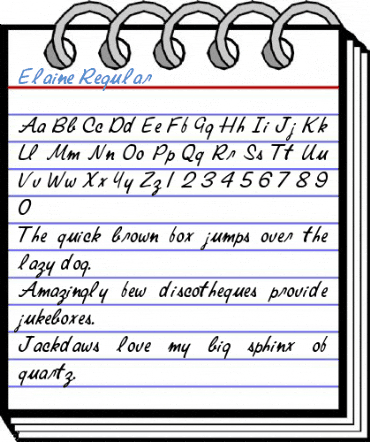 Elaine Regular
Aa Bb Cc Dd Ee Ff Gg Hh Ii Jj Kk
Ll Mm Nn Oo Pp Qq Rr Ss Tt Uu
Vv Ww Xx Yy Zz 1 2 3 4 5 6 7 8 9
0
The quick brown fox jumps over the
lazy dog.
Amazingly few discotheques provide
jukeboxes.
Jackdaws love my big sphinx of
quartz.